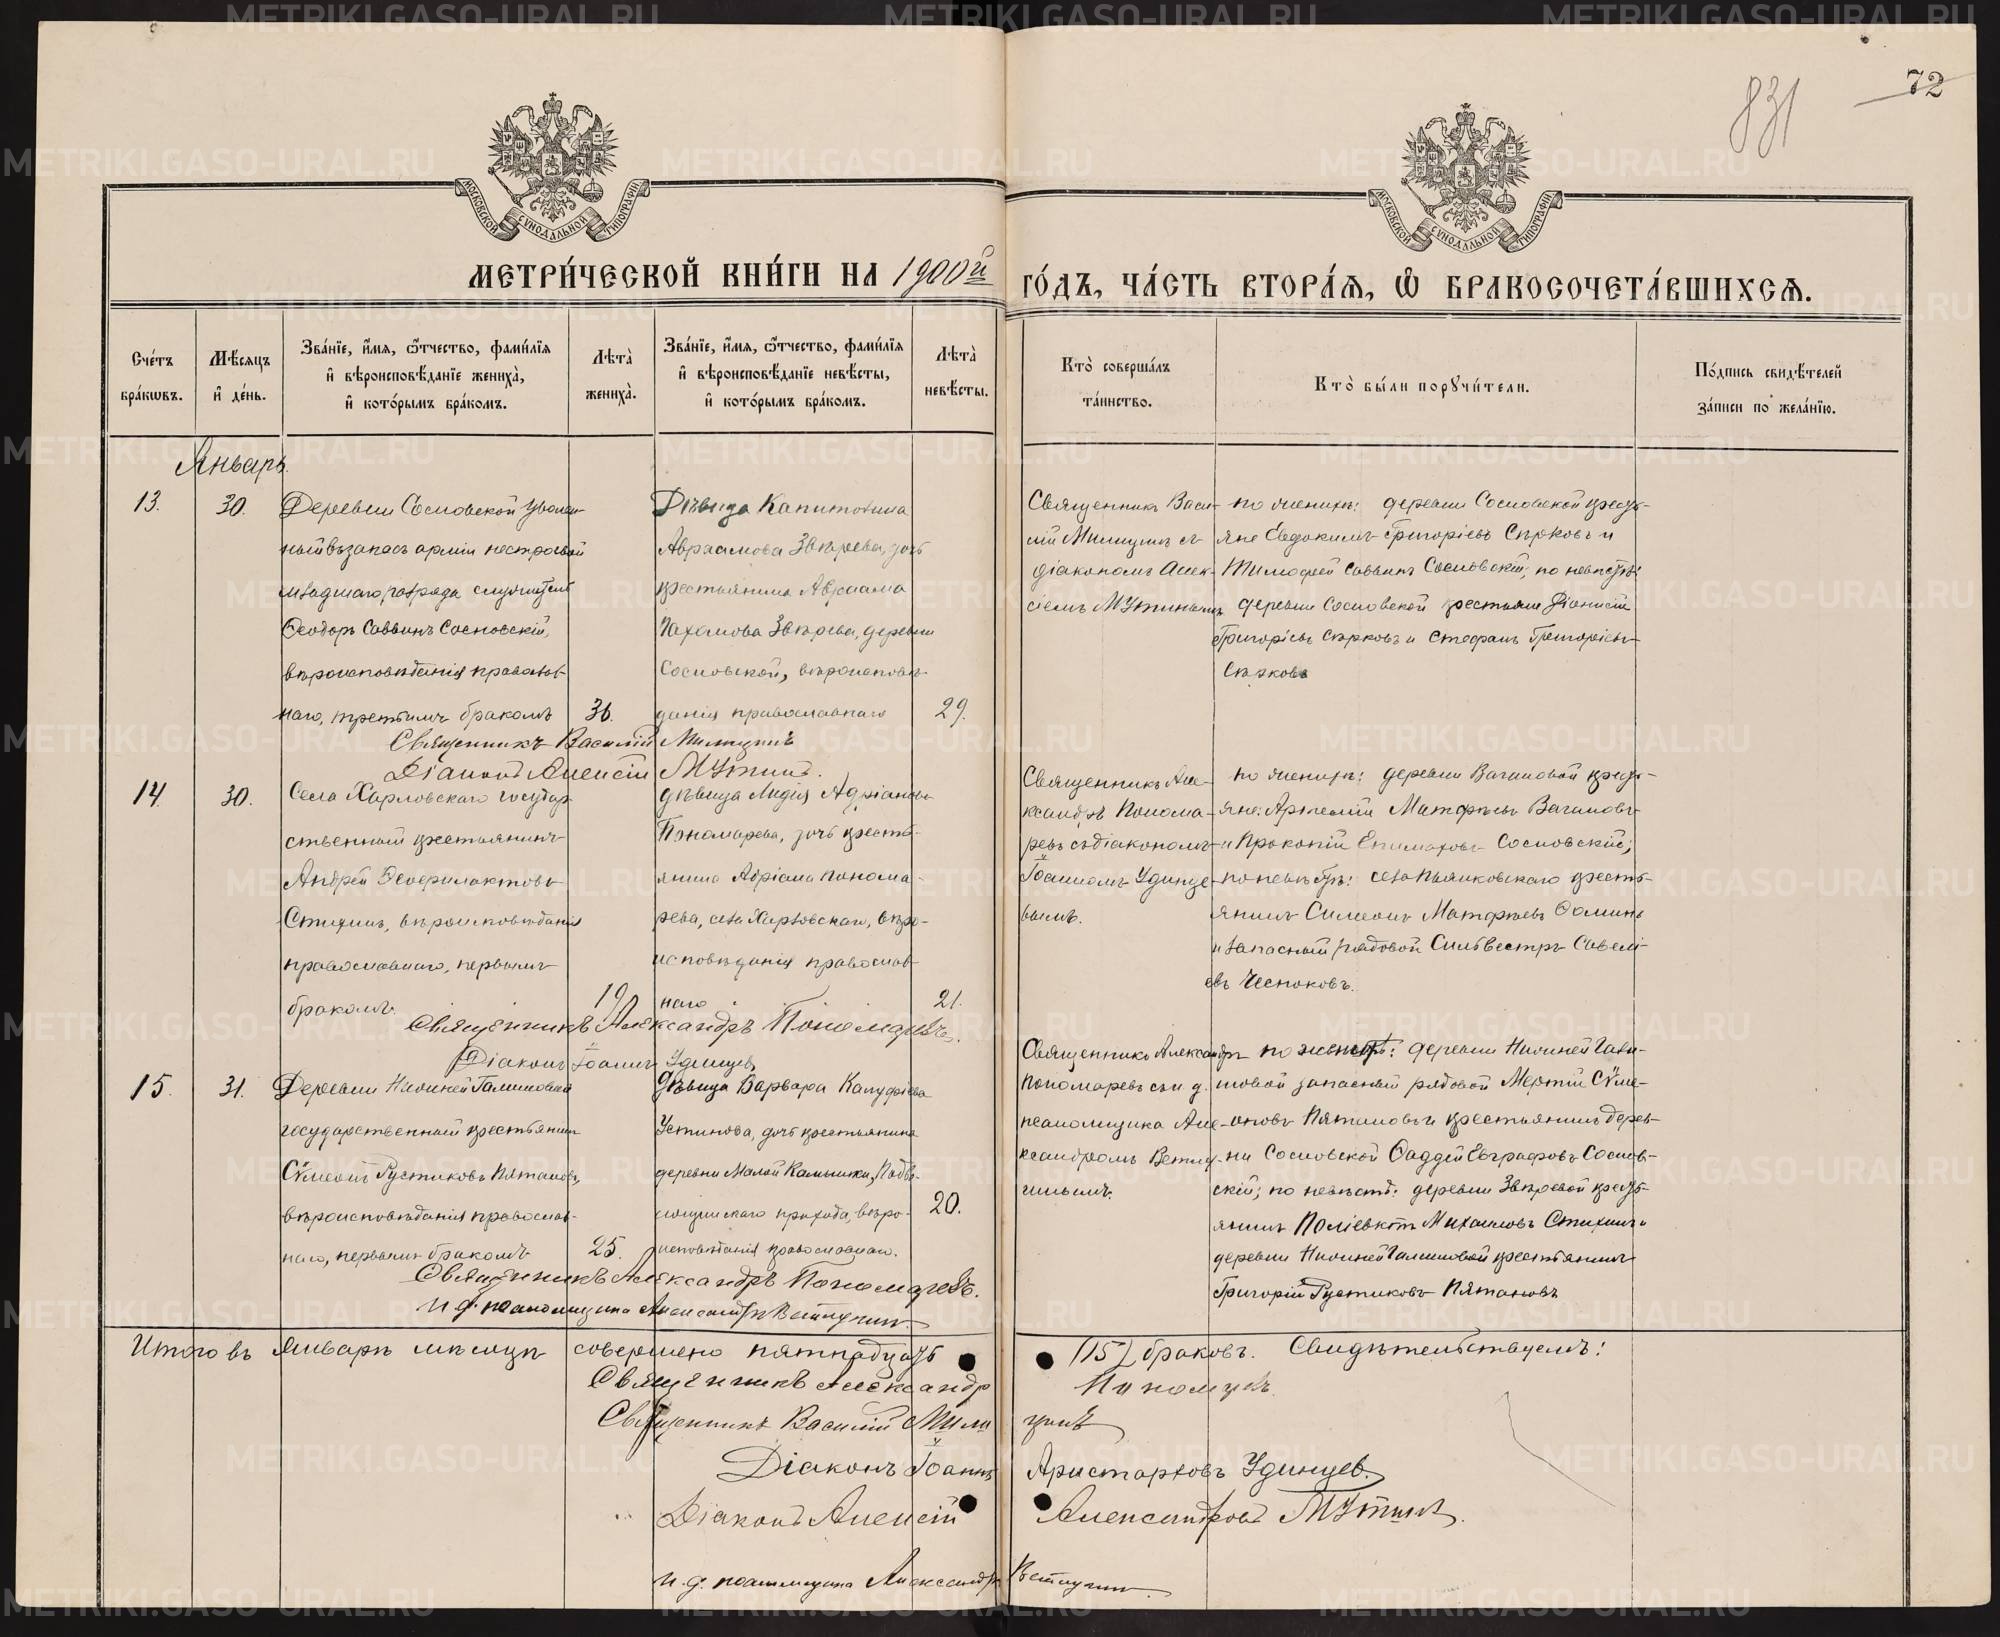 831
72
МОСКОВСКОЙ СѴНОДАЛЬНОЙ ТИПОГРАФІИ
МОСКОВСКОЙ СѴНОДАЛЬНОЙ ТИПОГРАФІИ
МЕТРИ́ЧЕСКОЙ КНИ́ГИ НА 1900й ГО́ДЪ, ЧА́СТЬ ВТОРА́Ѧ, Ѽ БРАКОСОЧЕТА́ВШИХСѦ.
Сче́тъ бра́кѡвъ.
Мѣ́сяцъ и҆ де́нь.
Зва́нїе, и҆́мя, ѻ҆́тчество, фами́лїя и҆ вѣроисповѣ́данїе жениха̀, и҆ кото́рымъ бра́комъ.
Лѣта̀ жениха̀.
Зва́нїе, и҆́мя, ѻ҆́тчество, фами́лїя и҆ вѣроисповѣ́данїе невѣ́сты, и҆ кото́рымъ бра́комъ.
Лѣта̀ невѣ́сты.
Кто̀ соверша́лъ та́инство.
Кто̀ бы́ли порꙋчи́тели.
По́дпись свидѣ́телей за́писи по жела́нїю.
Январь.
13.
30.
Деревни Сосновской уволен-
ный въ запасъ арміи нестроевой
младшаго разряда служитель
Ѳеодоръ Саввинъ Сосновскій,
вѣроисповѣданія православ-
наго, третьимъ бракомъ
36.
Дѣвица Капитолина
Авраамова Звѣрева, дочь
крестьянина Авраама
Пахомова Звѣрева, деревни
Сосновской, вѣроисповѣ-
данія православнаго
29.
Священникъ Васи-
лій Милицинъ съ
діакономъ Алек-
сіемъ Мутинымъ
по женихѣ: деревни Сосновской кресть-
яне Евдокимъ Григорьевъ Сѣрковъ и
Тимофей Саввинъ Сосновскій; по невѣстѣ:
деревни Сосновской крестьяне Діонисій
Григорьевъ Сѣрковъ и Стефанъ Григорьевъ
Сѣрковъ
Священникъ Василій Милицинъ
Діаконъ Алексій Мутинъ.
14.
30.
Села Харловскаго государ-
ственный крестьянинъ
Андрей Ѳеофилактовъ
Стихинъ, вѣроисповѣданія
православнаго, первымъ
бракомъ.
19
Дѣвица Лидія Адріанова
Пономарева, дочь кресть-
янина Адріана Понома-
рева, села Харловскаго, вѣро-
исповѣданія православ-
наго
21.
Священникъ Але-
ксандръ Понома-
ревъ съ діакономъ
Іоанномъ Удинце-
вымъ.
по женихѣ: деревни Вагановой кресть-
яне: Артемій Матфѣевъ Вагановъ
и Прокопій Епимаховъ Сосновскій;
по невѣстѣ: села Пьянковскаго кресть-
янинъ Симеонъ Матфѣевъ Ѳоминъ
и запасный рядовой Сильвестръ Савель-
евъ Чесноковъ.
Священникъ Александръ Пономаревъ.
Діаконъ Іоаннъ Удинцевъ
15.
31.
Деревни Нижней Галишовой
государственный крестьянинъ
Сѵмеонъ Рустиковъ Пятановъ,
вѣроисповѣданія православ-
наго, первымъ бракомъ
25.
Дѣвица Варвара Калуфіева
Устинова, дочь крестьянина
деревни Малой Камышки,
прихода, вѣро-
исповѣданія православнаго.
20.
Священникъ Александръ
Пономаревъ съ и. д.
псаломщика Але-
ксандромъ Ветлу-
гинымъ.
по женихѣ: деревни Нижней Гали-
шовой запасный рядовой Сѵме-
оновъ Пятановъ и крестьянинъ дерев-
ни Сосновской Ѳаддей Евграфовъ Соснов-
скій; по невѣстѣ: деревни Звѣревой кресть-
янинъ Поліевктъ Михаиловъ Стихинъ и
деревни Нижней Галишовой крестьянинъ
Григорій Рустиковъ Пятановъ
Священникъ Александръ Пономаревъ.
И. д. псаломщика Александръ Ветлугинъ.
Итого въ январѣ мѣсяцѣ совершено пятнадцать (15) браковъ. Свидѣтельствуемъ:
Священникъ Александръ Пономаревъ
Священникъ Василій Милицинъ
Діаконъ Іоаннъ Аристарховъ Удинцевъ.
Діаконъ Алексій Александровъ Мутинъ.
И. д. псаломщика Александръ Ветлугинъ.